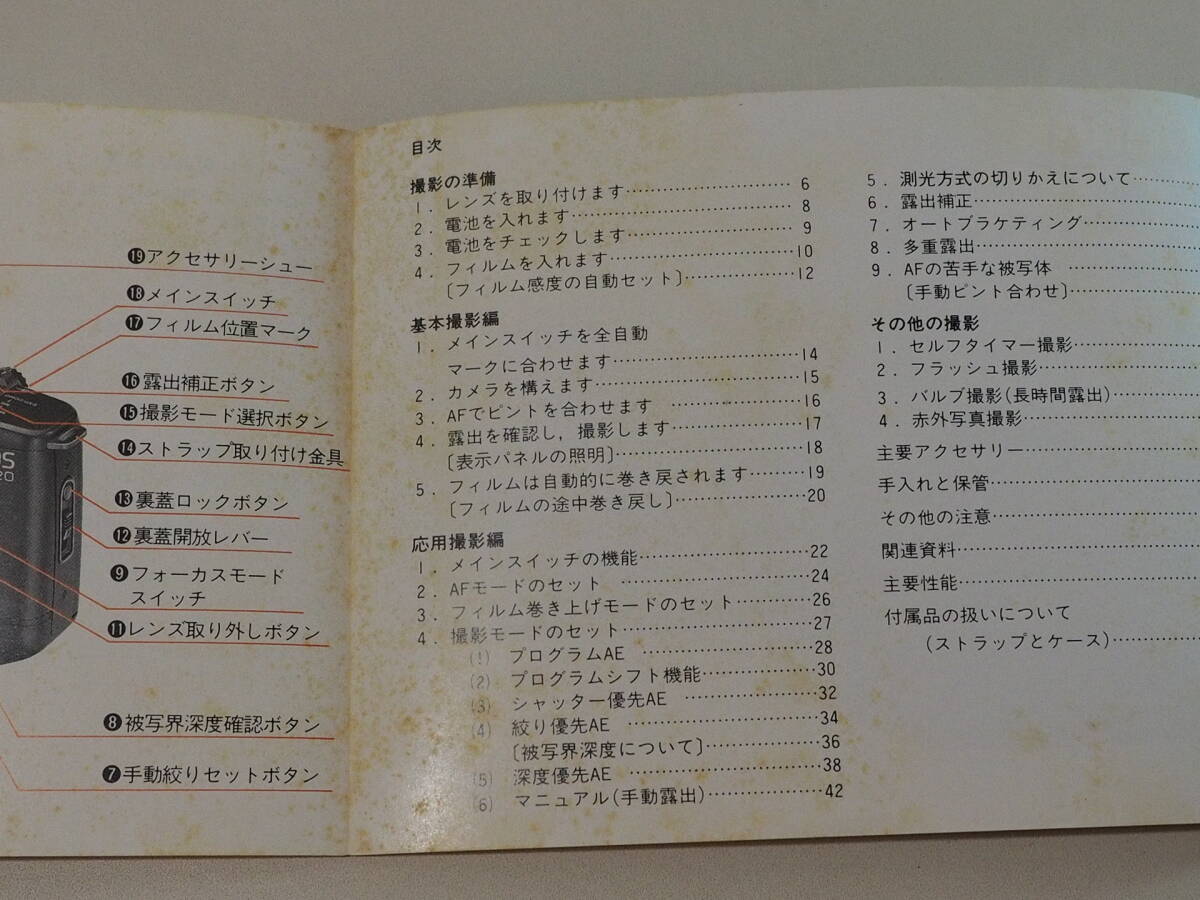 ⑲アクセサリーシュー
⑱メインスイッチ
⑰フィルム位置マーク
⑯露出補正ボタン
⑮撮影モード選択ボタン
⑭ストラップ取り付け金具
⑬裏蓋ロックボタン
⑫裏蓋開放レバー
⑨フォーカスモード
スイッチ
⑪レンズ取り外しボタン
⑧被写界深度確認ボタン
⑦手動絞りセットボタン
OS
20
目次
撮影の準備
1. レンズを取り付けます…………………… 6
2. 電池を入れます…………………… 8
3. 電池をチェックします…………………… 9
4. フィルムを入れます……………………10
〔フィルム感度の自動セット〕……………12
基本撮影編
1. メインスイッチを全自動
マークに合わせます……………………14
2. カメラを構えます……………………15
3. AFでピントを合わせます ……………16
4. 露出を確認し，撮影します……………17
〔表示パネルの照明〕……………………18
5. フィルムは自動的に巻き戻されます………19
〔フィルムの途中巻き戻し〕……………20
応用撮影編
1. メインスイッチの機能……………………22
2. AFモードのセット ……………………24
3. フィルム巻き上げモードのセット…………26
4. 撮影モードのセット……………………27
(1) プログラムAE ……………………28
(2) プログラムシフト機能……………30
(3) シャッター優先AE ……………32
(4) 絞り優先AE ……………………34
〔被写界深度について〕……………36
(5) 深度優先AE ……………………38
(6) マニュアル(手動露出)……………42
5. 測光方式の切りかえについて…………
6. 露出補正……………………
7. オートブラケティング……………
8. 多重露出……………………
9. AFの苦手な被写体 ……………
〔手動ピント合わせ〕……………
その他の撮影
1. セルフタイマー撮影……………
2. フラッシュ撮影……………
3. バルブ撮影(長時間露出)…………
4. 赤外写真撮影……………
主要アクセサリー……………
手入れと保管……………
その他の注意……………
関連資料……………
主要性能……………
付属品の扱いについて
(ストラップとケース)…………